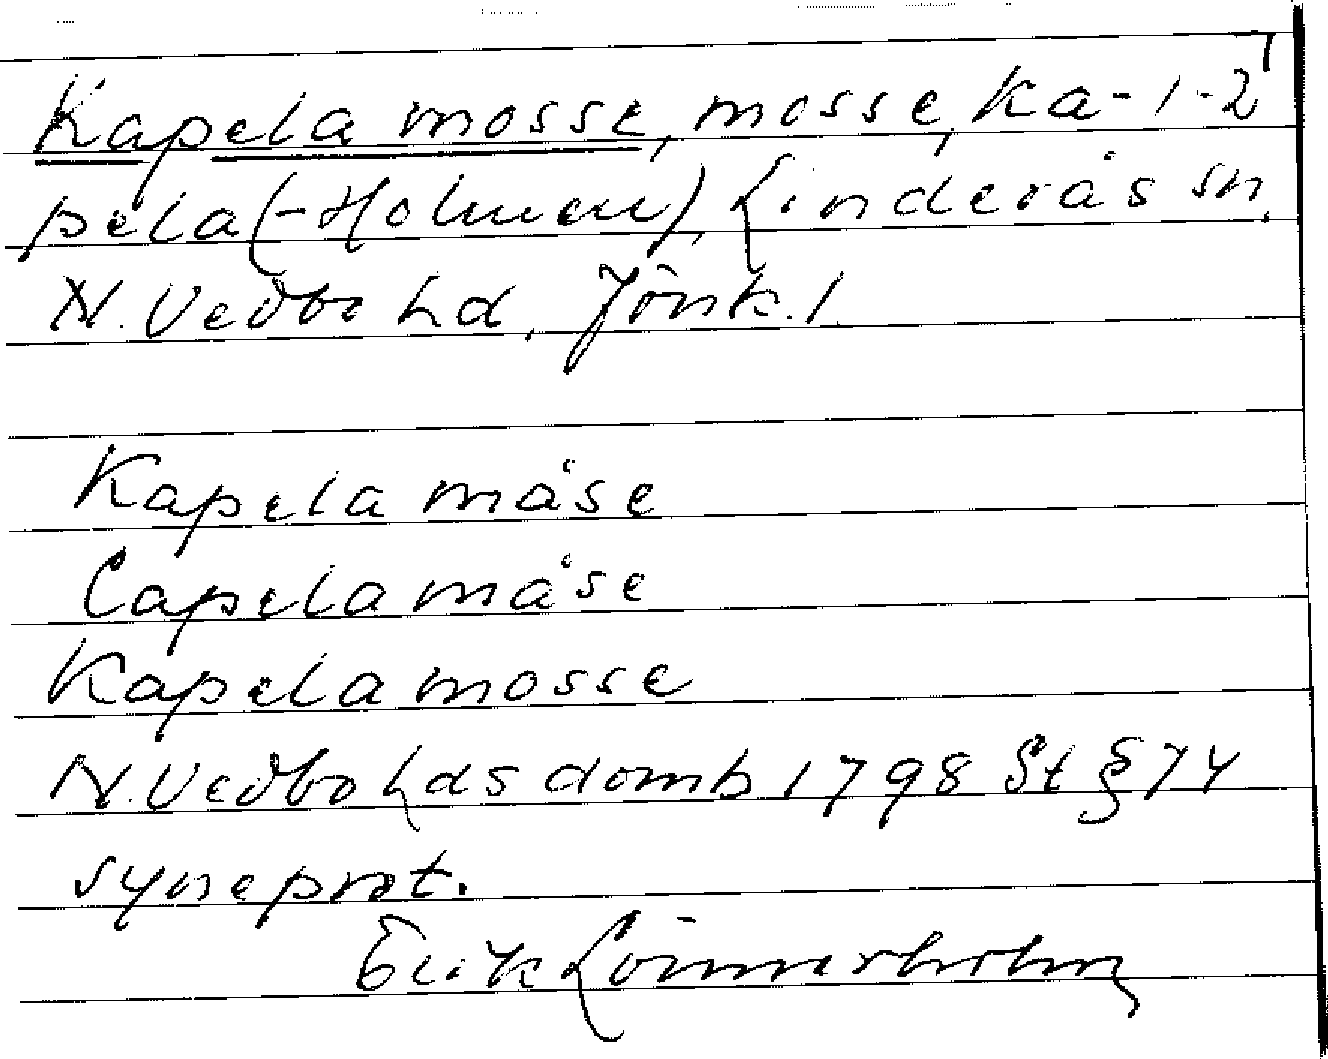 Kapela mosse, mosse, ka-1-2
pela(-Holmen), Linderås sn,
N. Vedbo hd, Jönk. l
Kapela måse
Capela måse
Kapela mosse
N. Vedbo hds domb 1798 St § 74
syneprot.
Erik Lönnerholm